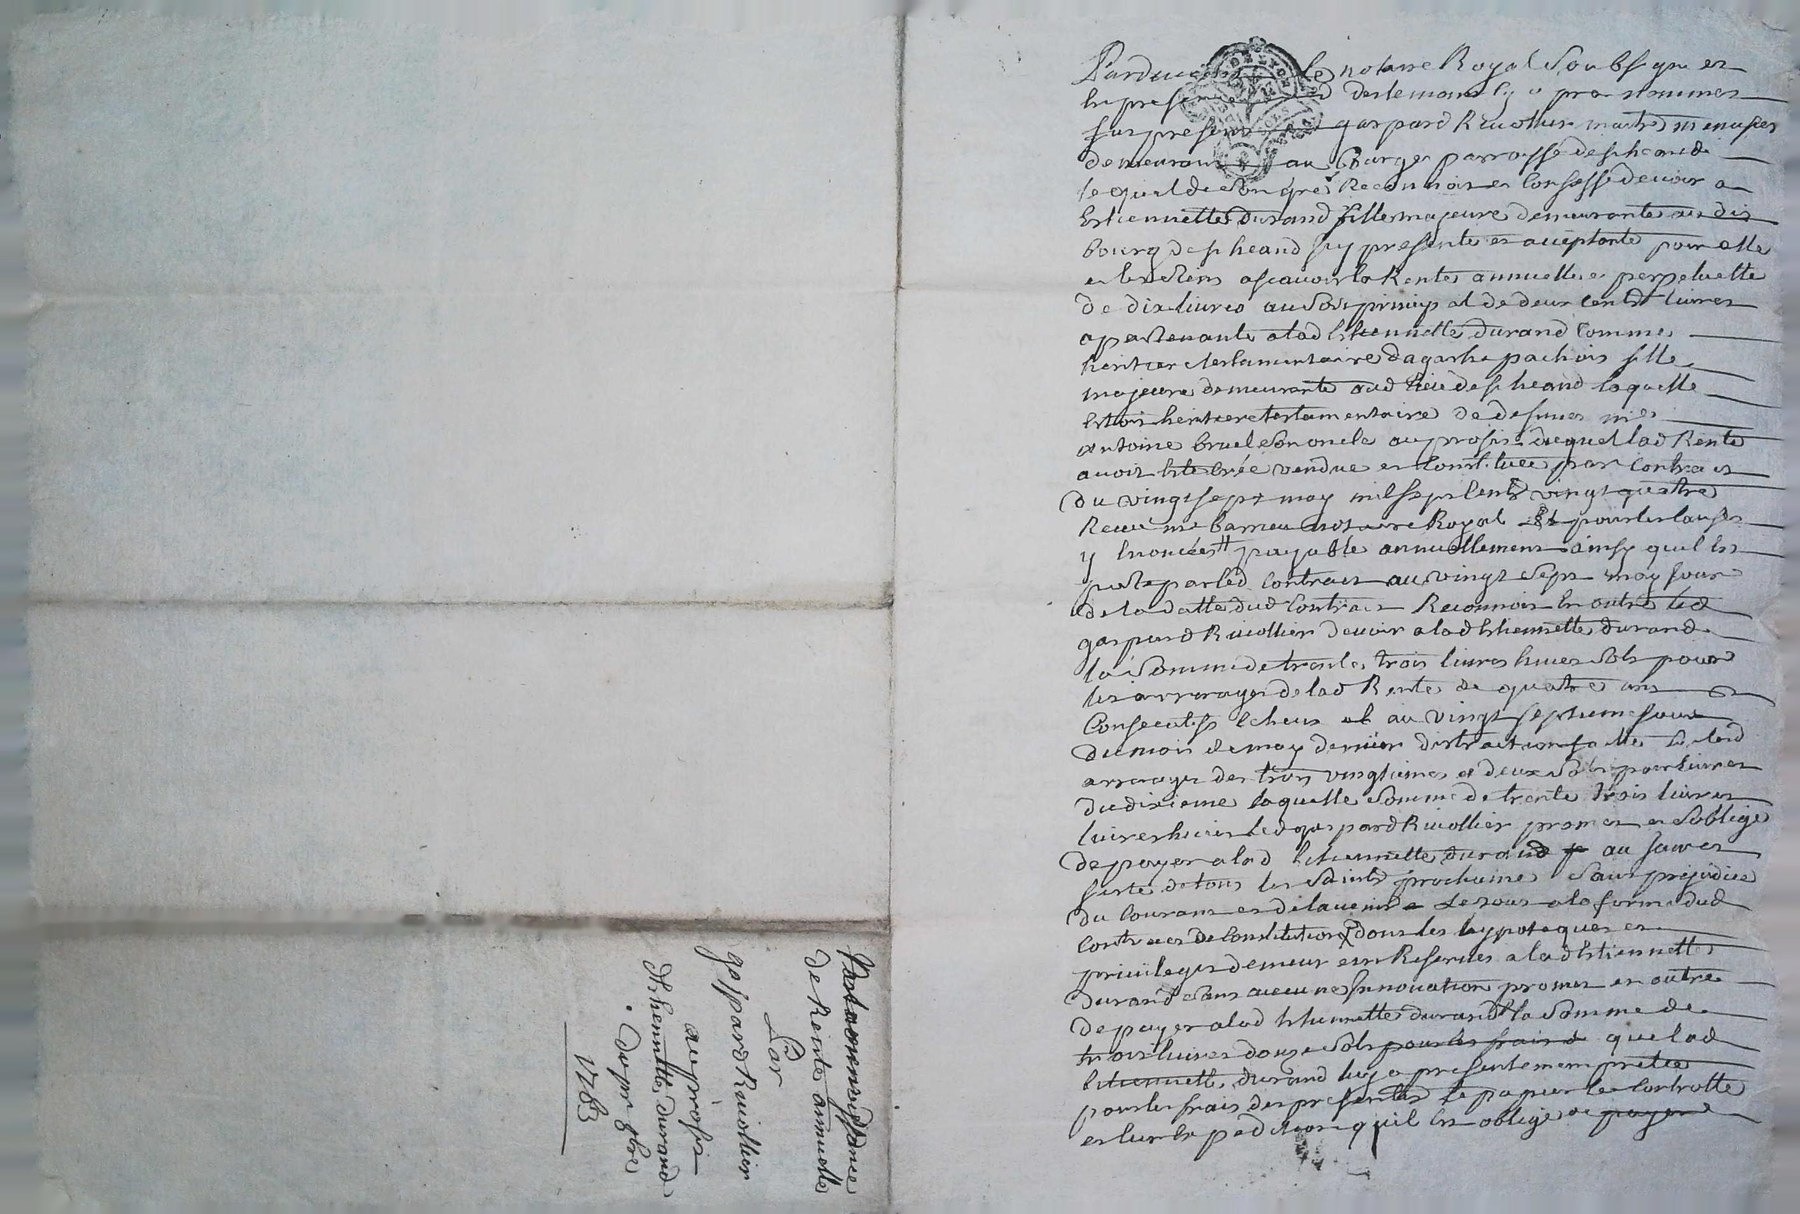 Pardevant le notaire Royal Soubsigné et
En presence des temoins cy a pres nommes
fut present gaspard Rivollier maitre menusier
demeurant au Bourg et parroisse de st heand
lequel de Son gré Reconnoit et Confesse devoir a
Estiennette Durand fille majeure demeurante au dit
bourg de st heand icy presente et acceptante pour elle
et les Siens ascavoir la Rente annuelle et perpetuelle
de dix livres au Sort principal de deux cents livres
apartenante a lad Estiennette Durand Comme
heritiere testamentaire dagathe pachois fille
majeure demeurante aud lieu de st heand laquelle
Estoit heritiere testamentaire de defunt mre
antoine bruel Son oncle au profit duquel lad Rente
avoit Esté Créée vendue et Constituée par Contract
du vingt sept may mil sept Cents vingt quatre
Receu me notaire Royal Et pour les Causes
y Enoncées payable annuellement ainsy quil Est
porté par led Contract au vingt Sept may jour
de la datte dud Contract Reconnoit En outre led
gaspard Rivollier devoir a lad Estiennette Durand
la Somme de trente trois livres huit Sols pour
les arrerages de lad Rente de quatre ans
Consecutifs Echeus au vingt septieme jour
du mois de may dernier distraction faitte sur lesd
arrerages des trois vingtiemes et deux Sols pour livres
du dixieme laquelle Somme de trente trois livres
livres huit led gaspard Rivollier promet et Soblige
de payer a lad Estiennette Durand au jour et
feste de tous les Saints prochaine Sans prejudice
du Courant et de lavenir Le tout a la forme dud
Contract de Constitution dont les hypoteques et
privileges demeurent Reservés a lad Estiennette
Durand Sans aucune Innovation promet en outre
de payer a lad Estiennette Durand la Somme de
trois livres douze Sols pour les frais de que lad
Estiennette Durand luy a presentement prettée
pour les frais des presentes Le papier le Controlle
et lur Expedition quil Est obligé de payer
Reconnoissance
de Rente annuelle
Par
gaspard Rivollier
au profit
dEstiennette Durand
Du 9bre
1763